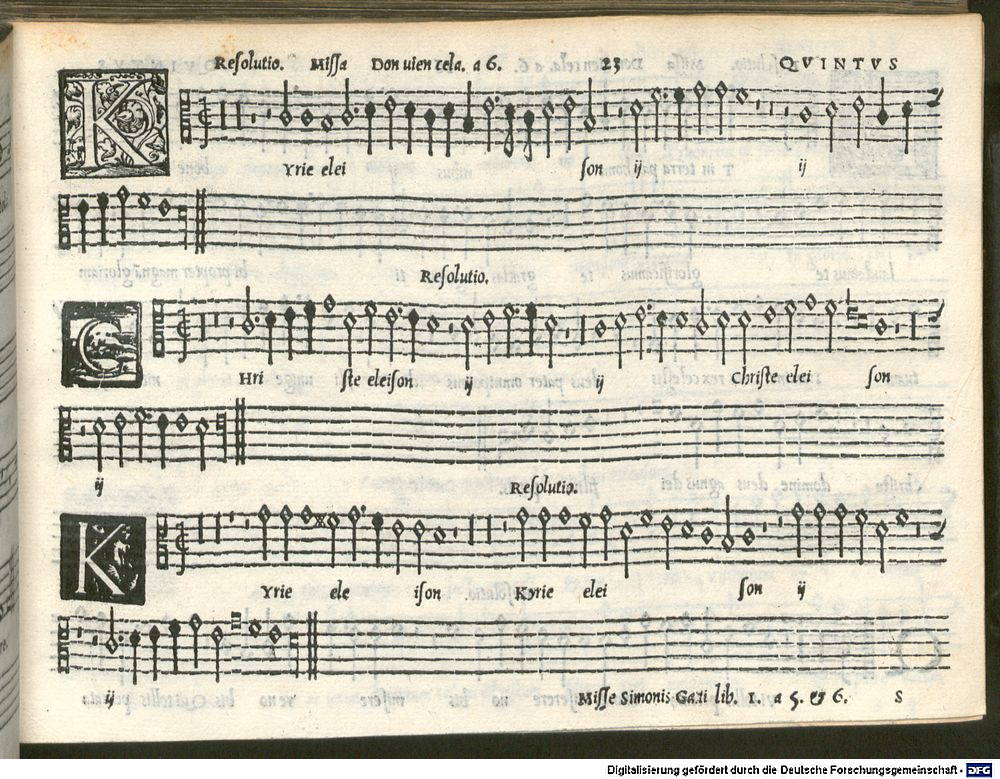 Resolutio. Missa Don uien cela. a 6. 29 QVINTVS
K Yrie elei son ij ij
Resolutio.
C Hri ste eleison ij ij Christe elei son
ij
Resolutio.
K Yrie ele ison Kyrie elei son ij
ij
Misse Simonis Gati lib. 1. a 5. & 6. S
Digitalisierung gefördert durch die Deutsche Forschungsgemeinschaft - DFG